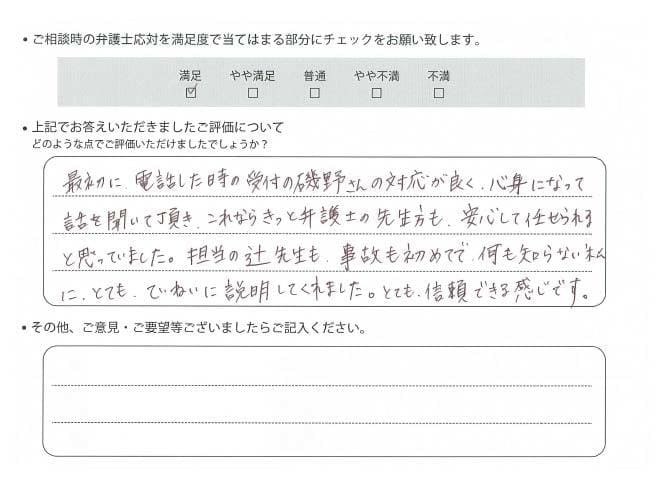 • ご相談時の弁護士応対を満足度で当てはまる部分にチェックをお願い致します。
満足 やや満足 普通 やや不満 不満
☑ ☐ ☐ ☐ ☐
• 上記でお答えいただきましたご評価について
どのような点でご評価いただけましたでしょうか？
最初に、電話した時の受付の磯野さんの対応が良く、心身になって
話を聞いて頂き、これならきっと弁護士の先生方も、安心して任せられる
と思っていました。担当の辻先生も、事故も初めてで、何も知らない私
に、とても、ていねいに説明してくれました。とても、信頼できる感じです。
• その他、ご意見・ご要望等ございましたらご記入ください。